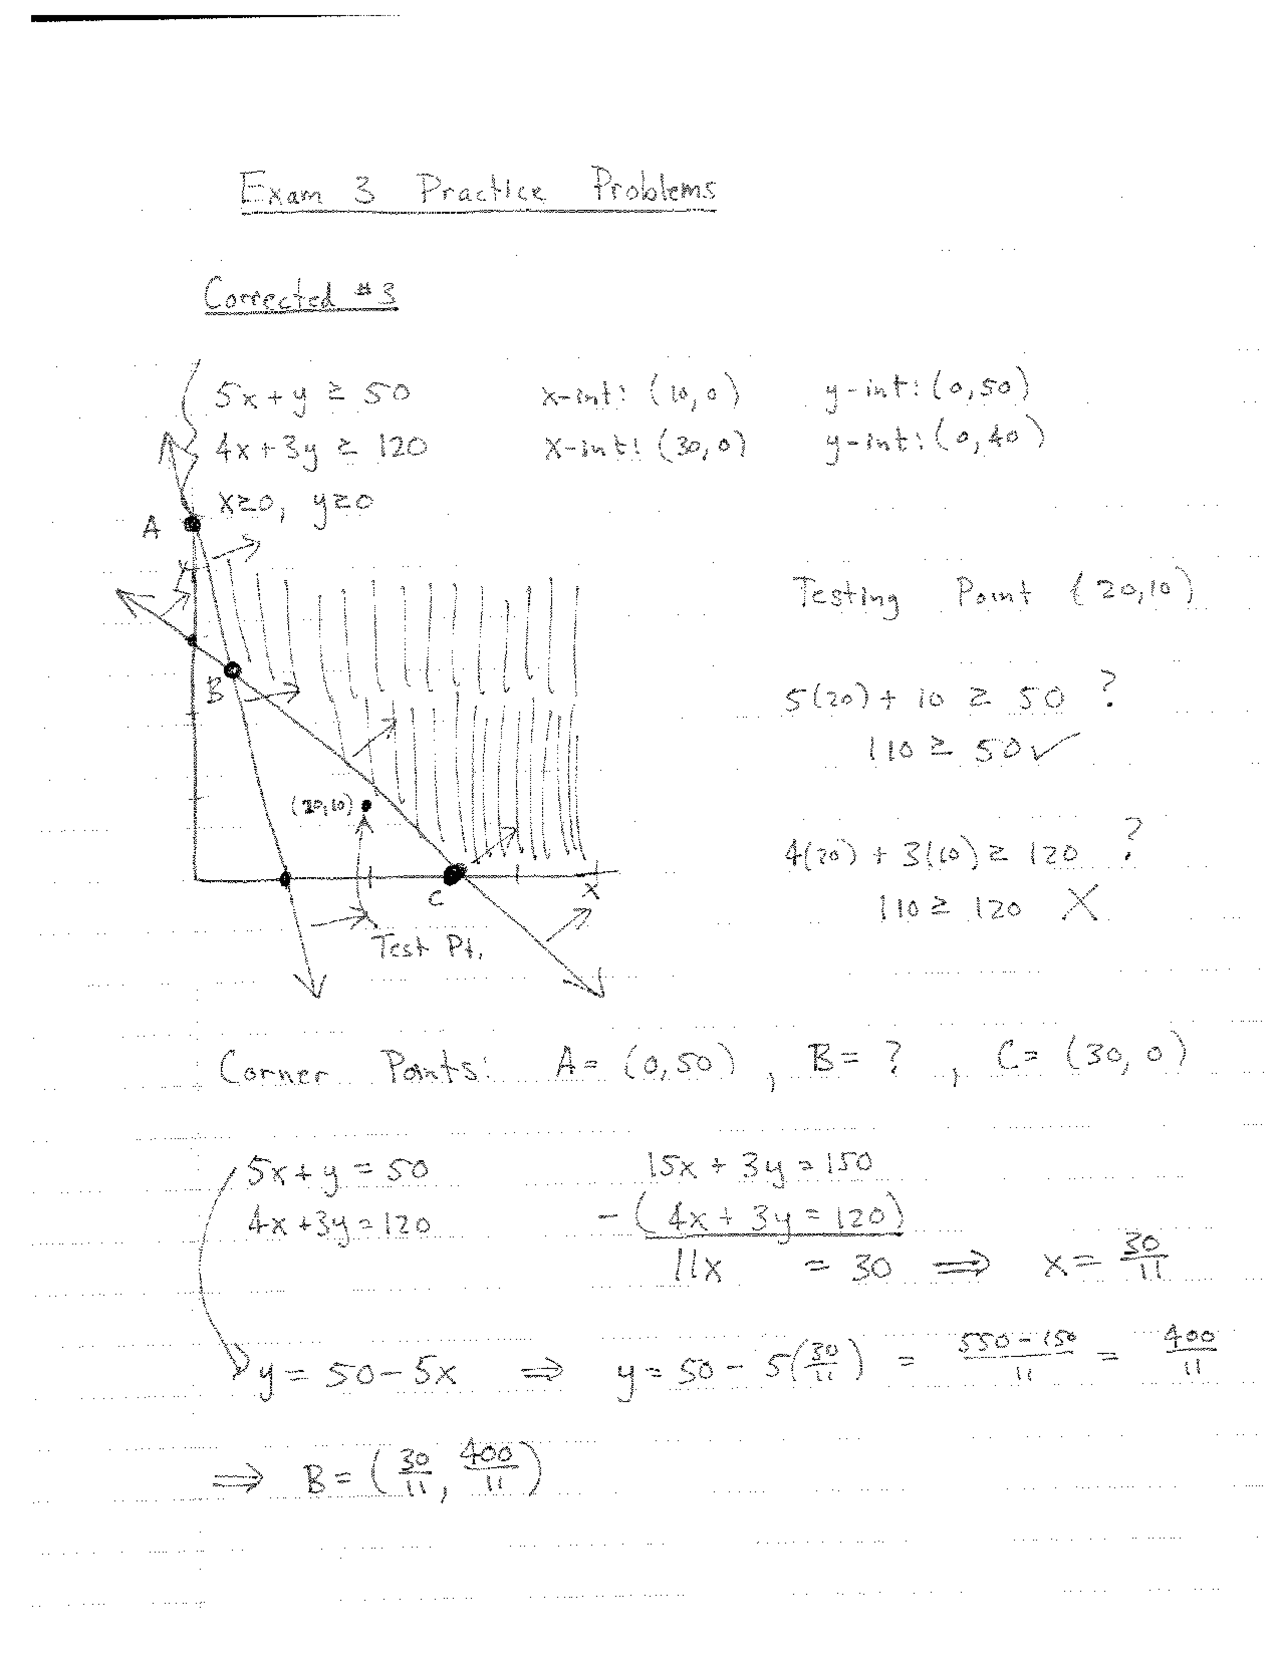 Exam 3 Practice Problems
Corrected #3
5x + y ≥ 50 x-int: (10, 0) y-int: (0, 50)
4x + 3y ≥ 120 x-int: (30, 0) y-int: (0, 40)
x≥0, y≥0
A
Testing Point (20,10)
B
5(20) + 10 ≥ 50 ?
110 ≥ 50 ✓
(20,10)
4(20) + 3(10) ≥ 120 ?
C x
110 ≥ 120 X
Test Pt.
Corner Points: A = (0, 50), B = ?, C = (30, 0)
5x + y = 50 15x + 3y = 150
4x + 3y = 120 - (4x + 3y = 120)
11x = 30 ⟹ x = 30/11
y = 50 - 5x ⟹ y = 50 - 5(30/11) = 550 - 150/11 = 400/11
⟹ B = (30/11, 400/11)